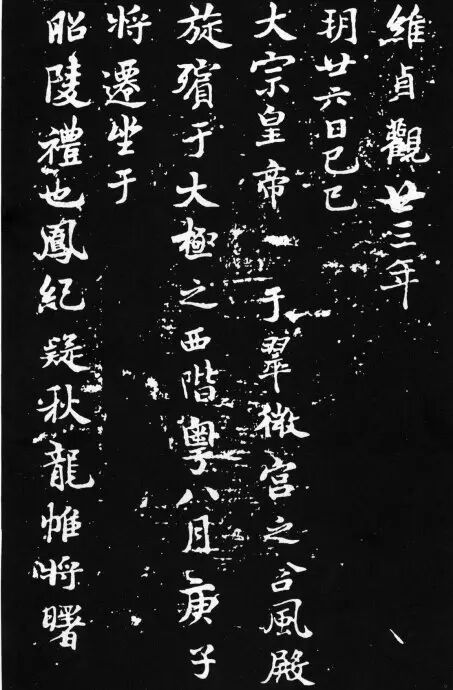 維貞觀廿三年
玥廿六日己巳
大宗皇帝一于翠微宫之含風殿
旋殯于大極之西階粤八月庚子
将遷坐于
昭陵禮也鳳紀疑秋龍帷将曙